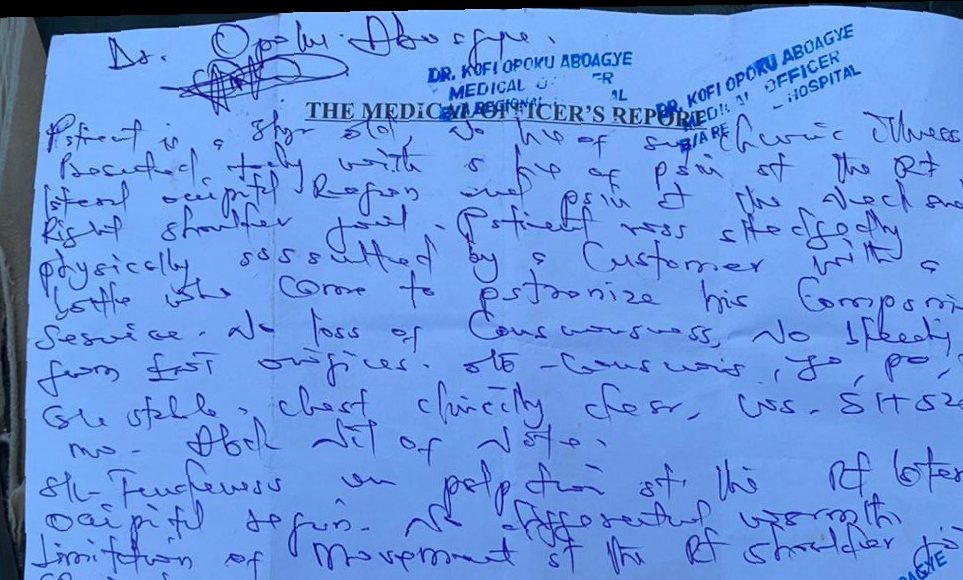 Dr. Opoku Aboagye.
DR. KOFI OPOKU ABOAGYE
MEDICAL
REGIONAL
DR. KOFI OPOKU ABOAGYE
OFFICER
HOSPITAL
THE MEDICAL OFFICER'S REPORT
Patient is a old, No hx of Chronic illness
Presented today with a hx of pain at the Rt
lateral occipital Region and pain at the Neck and
Right shoulder joint. Patient was allegedly
physically assaulted by a Customer with a
bottle who Came to patronize his
Service. No loss of Consciousness, No
from ENT orifices. O/E - Conscious,
stable. Chest clinically clear, CVS - S1+S2
Abd Nil of Note.
Tenderness on palpation at the Rt
occipital region. No differential warmth
limitation of movement at the Rt shoulder